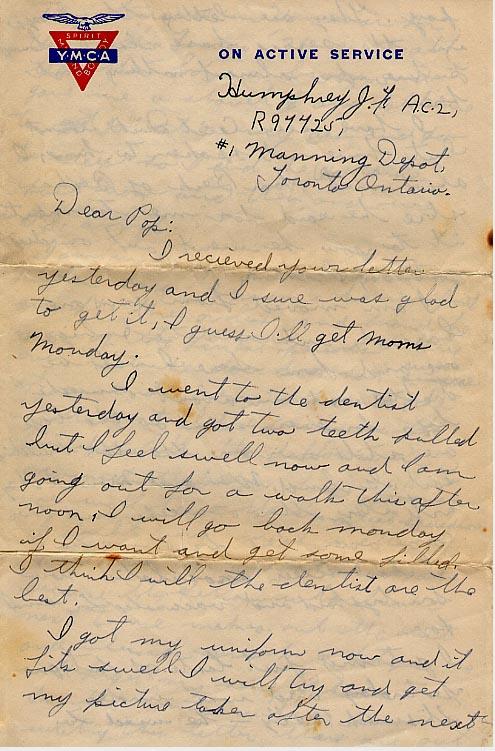 SPIRIT
Y·M·C·A
MIND
BODY
ON ACTIVE SERVICE
Humphrey J.F. A.C.2,
R97425,
#1 Manning Depot,
Toronto Ontario.
Dear Pop:
I recieved your letter
yesterday and I sure was glad
to get it, I guess I'll get moms
Monday.
I went to the dentist
yesterday and got two teeth pulled
but I feel swell now and I am
going out for a walk this after
noon, I will go back monday
if I want and get some filled.
I think I will the dentist are the
best.
I got my uniform now and it
fits swell I will try and get
my picture taken after the next